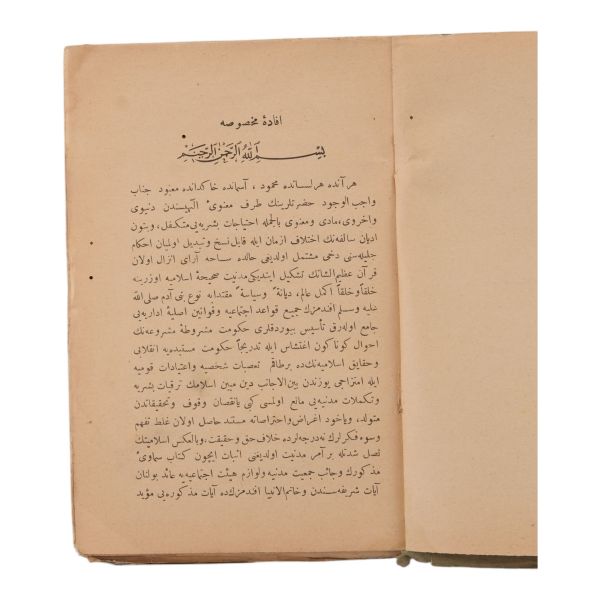 افادهٔ مخصوصه
بسم الله الرحمن الرحيم
هر آنده هر لسانده محمود ، آسمانده خاكدانده معبود جناب
واجب الوجود حضرتلرينك طرف معنوئ الهيسندن دنيوى
واخروى، مادى ومعنوى بالجمله احتياجات بشريه‌يى متكفل، وبتون
اديان سالفه‌نك اختلاف ازمان ايله قابل نسخ وتبديل اولميان احكام
جليله‌سنى دخى مشتمل اولديغى حالده ساحه آراى انزال اولان
قرآن عظيم الشانك تشكيل ايتديكى مدنيت صحيحهٔ اسلاميه اوزرينه
خلقاً وخلقاً اكمل عالم، ديانةً وسياسةً مقتدابه نوع بنى آدم صلى الله
عليه وسلم افندمزك جميع قواعد اجتماعيه وقوانين اصليهٔ اداريه‌يى
جامع اوله‌رق تأسيس بيوردقلرى حكومت مشروطهٔ مشروعه‌نك
احوال كوناكون اغتشاش ايله تدريجاً حكومت مستبديه انقلابى
وحقايق اسلاميه‌نك ده برطاقم تعصبات شخصيه واعتيادات قوميه
ايله امتزاجى يوزندن بين الاجانب دين مبين اسلامك ترقيات بشريه
وتكملات مدنيه‌يى مانع اولمسى كبى يا نقصان وقوف وتحقيقاتدن
متولد، وياخود اغراض واحتراصاته مستند حاصل اولان غلط تفهم
وسوء فكرلرك نه درجه‌لرده خلاف حق وحقيقت، وبالعكس اسلاميتك
نصل شدتله بر آمر مدنيت اولديغنى اثبات ايچون كتاب سماوئ
مذكورك وجائب جمعيت مدنيه ولوازم هيئت اجتماعيه‌يه عائد بولنان
آيات شريفه‌سندن وخاتم الانبيا افندمزك ده آيات مذكوره‌يى مؤيد